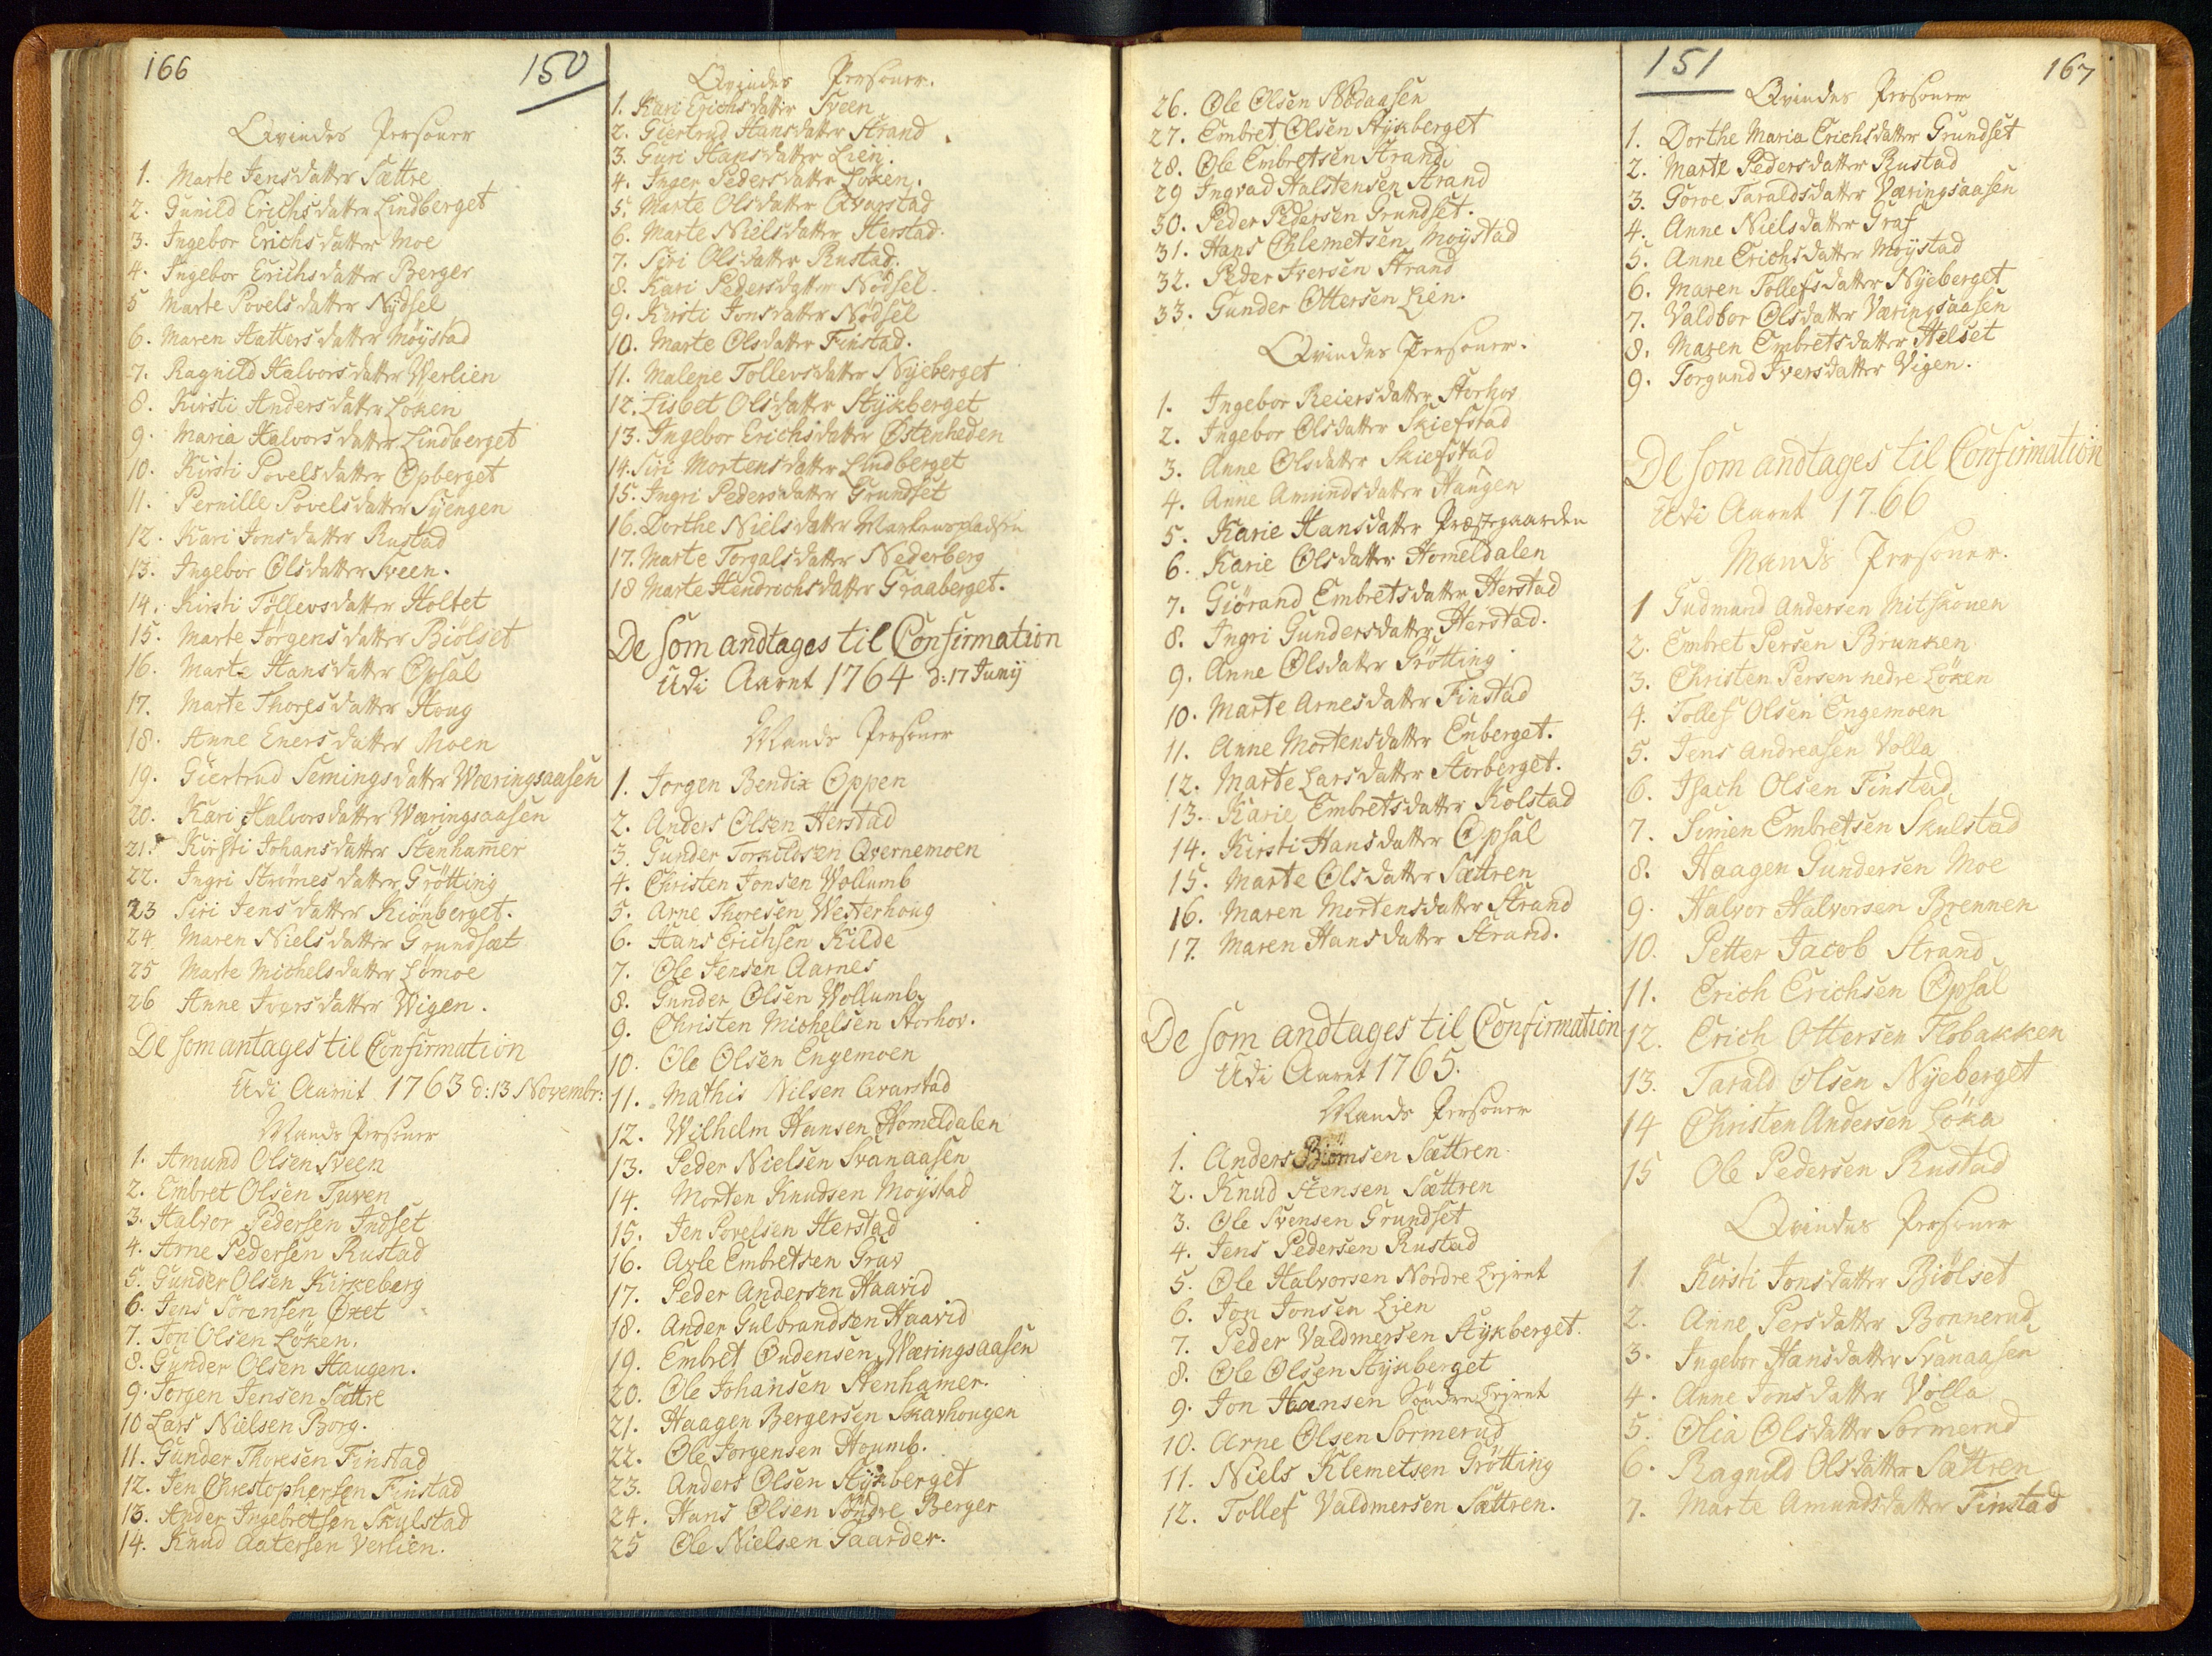 166
150
Qvindes Personer
1. Marte Jensdatter Sættre
2. Gunild Erichsdatter Lindberget
3. Ingebor Erichsdatter Moe
4. Ingebor Erichsdatter Berger
5 Marte Povelsdatter Nydsel
6. Maren Hattersdatter Möystad
7. Ragnild Halvorsdatter Werlien
8. Kirsti Andersdatter Löken
9. Maria Halvorsdatter Lindberget
10. Kirsti Povelsdatter Opberget
11. Pernille Povelsdatter Syengen
12. Kari Jonsdatter Rustad
13. Ingebor Olsdatter Sveen.
14. Kirsti Töllevsdatter Holtet
15. Marte Jörgensdatter Biölset
16. Marte Hansdatter Opsal
17. Marte Thoresdatter Houg
18. Anne Enersdatter Moen
19. Giertrud Semingsdatter Wæringsaasen
20. Kari Halvorsdatter Wæringsaasen
21. Kirsti Johansdatter Stenhammer
22. Ingri Strömesdatter Grötting
23 Siri Jensdatter Kiönberget.
24. Maren Nielsdatter Grundsæt
25 Marte Michelsdatter Lömoe
26 Anne Iversdatter Wigen.
De som antages til Confirmation
Udi Aaret 1763 d: 13 Novembr:
Mands Personer
1. Amund Olsen Sveen
2. Embret Olsen Tuven
3. Halvor Pedersen Indset
4. Arne Pedersen Rustad
5. Gunder Olsen Kirkeberg
6. Jens Sörensen Oxet
7. Jon Olsen Löken.
8. Gunder Olsen Haugen.
9. Jorgen Jensen Sættre
10 Lars Nielsen Borg.
11. Gunder Thoresen Finstad
12. Jen Chrestophersen Finstad
13. Ander Ingebretsen Skulstad
14. Knud Aatersen Verlien.
Qvindes Personer.
1. Kari Erichsdatter Sveen
2. Giertrud Hansdatter Strand
3. Guri Hansdatter Lien.
4. Inger Pedersdatter Löken.
5. Marte Olsdatter Qvarstad
6. Marte Nielsdatter Herstad.
7. Siri Olsdatter Rustad.
8. Kari Pedersdatter Nödsel.
9. Kirsti Jonsdatter Nödsel
10. Marte Olsdatter Finstad.
11. Malene Tollevsdatter Nyeberget
12. Lisbet Olsdatter Stykberget
13. Ingebor Erichsdatter Östenheden
14. Siri Mortensdatter Lindberget
15. Ingri Pedersdatter Grundset
16. Dorthe Nielsdatter Markenspladsen
17. Marte Torgalsdatter Nederberg
18 Marte Hendrichsdatter Graaberget.
De som andtages til Confirmation
Udi Aaret 1764 d: 17 Junij
Mands Personer
1. Jorgen Bendix Oppen
2. Anders Olsen Herstad
3. Gunder Torkildsen Qvernemoen
4. Christen Jonsen Wollumb
5. Arne Thoresen Westerhoug
6. Hans Erichsen Kilde
7. Ole Jensen Aarnes
8. Gunder Olsen Wollumb
9. Christen Michelsen Storhov.
10. Ole Olsen Engemoen
11. Mathis Nilsen Qvarstad
12. Wilhelm Hansen Homeldalen
13. Peder Nielsen Svanaasen
14. Morten Knudsen Moystad
15. Jen Povelsen Herstad
16. Avle Embretsen Grav
17. Peder Andersen Haavid
18. Ander Gulbrandsen Haavid
19. Embret Oudensen Wæringsaasen
20. Ole Johansen Stenhamer.
21. Haagen Bergersen Skavhougen
22. Ole Jorgensen Houmb.
23. Anders Olsen Stykberget
24. Hans Olsen Söndre Berger
25 Ole Nielsen Gaarder.
26. Ole Olsen Sködaasen
27. Embret Olsen Stykberget
28. Ole Embretsen Strand
29 Ingvad Halstensen Strand
30. Peder Pedersen Grundset.
31. Hans Chlemetsen Moystad
32. Peder Iversen Strand
33. Gunder Ottersen Lien.
Qvindes Personer.
1. Ingebor Reiersdatter Storhov
2. Ingebor Olsdatter Skiefstad
3. Anne Olsdatter Skiefstad
4. Anne Amundsdatter Haugen
5. Karie Hansdatter Præstegaarden
6. Karie Olsdatter Homeldalen
7. Giörand Embretsdatter Herstad
8. Ingri Gundersdatter Herstad.
9. Anne Olsdatter Grötting
10. Marte Arnesdatter Finstad
11. Anne Mortensdatter Enberget.
12. Marte Larsdatter Storberget.
13. Karie Embretsdatter Kolstad
14. Kirsti Hansdatter Opsal
15. Marte Olsdatter Sættren
16. Maren Mortensdatter Strand
17. Maren Hansdatter Strand.
De som andtages til Confirmation
Udi Aaret 1765.
Mands Personer
1. Anders Biörnsen Sættren
2. Knud Stensen Sættren
3. Ole Svensen Grundset
4. Jens Pedersen Rustad
5. Ole Halvorsen Nordre Lejret
6. Jon Jonsen Lien
7. Peder Valdmersen Stykberget.
8. Ole Olsen Stykberget
9. Jon Hansen Söndre Lejret
10. Arne Olsen Sormerud
11. Niels Klemetsen Grötting
12. Tollef Valdmersen Sættren.
151
167
Qvindes Personer
1. Dorthe Maria Erichsdatter Grundset
2. Marte Pedersdatter Rustad
3. Goroe Taraldsdatter Væringsaasen
4. Anne Nielsdatter Graf
5. Anne Erichsdatter Moystad
6. Maren Tollefsdatter Nyeberget
7. Valdbor Olsdatter Væringsaasen
8. Maren Embretsdatter Helset
9. Torgund Iversdatter Vigen.
De som andtages til Confirmation
Udi Aaret 1766
Mands Personer.
1 Gudmund Andersen Mitskouen
2. Embret Persen Brunken
3. Christen Persen nedre Löken
4. Tollef Olsen Engemoen
5. Jens Andreasen Volla
6. Isach Olsen Finstad
7. Simen Embretsen Skulstad
8. Haagen Gundersen Moe
9. Halvor Halvorsen Brennen
10. Petter Jacob Strand
11. Erich Erichsen Opsal
12. Erich Ottersen Skobakken
13. Tarald Olsen Nyeberget
14 Christen Andersen Löka
15 Ole Pedersen Rustad
Qvindes Personer
1. Kirsti Jonsdatter Biölset
2. Anne Persdatter Bonnerud
3. Ingebor Hansdatter Svanaasen
4. Anne Jonsdatter Volla
5. Olia Olsdatter Sormerud
6. Ragnild Olsdatter Sættren
7. Marte Amundsdatter Finstad